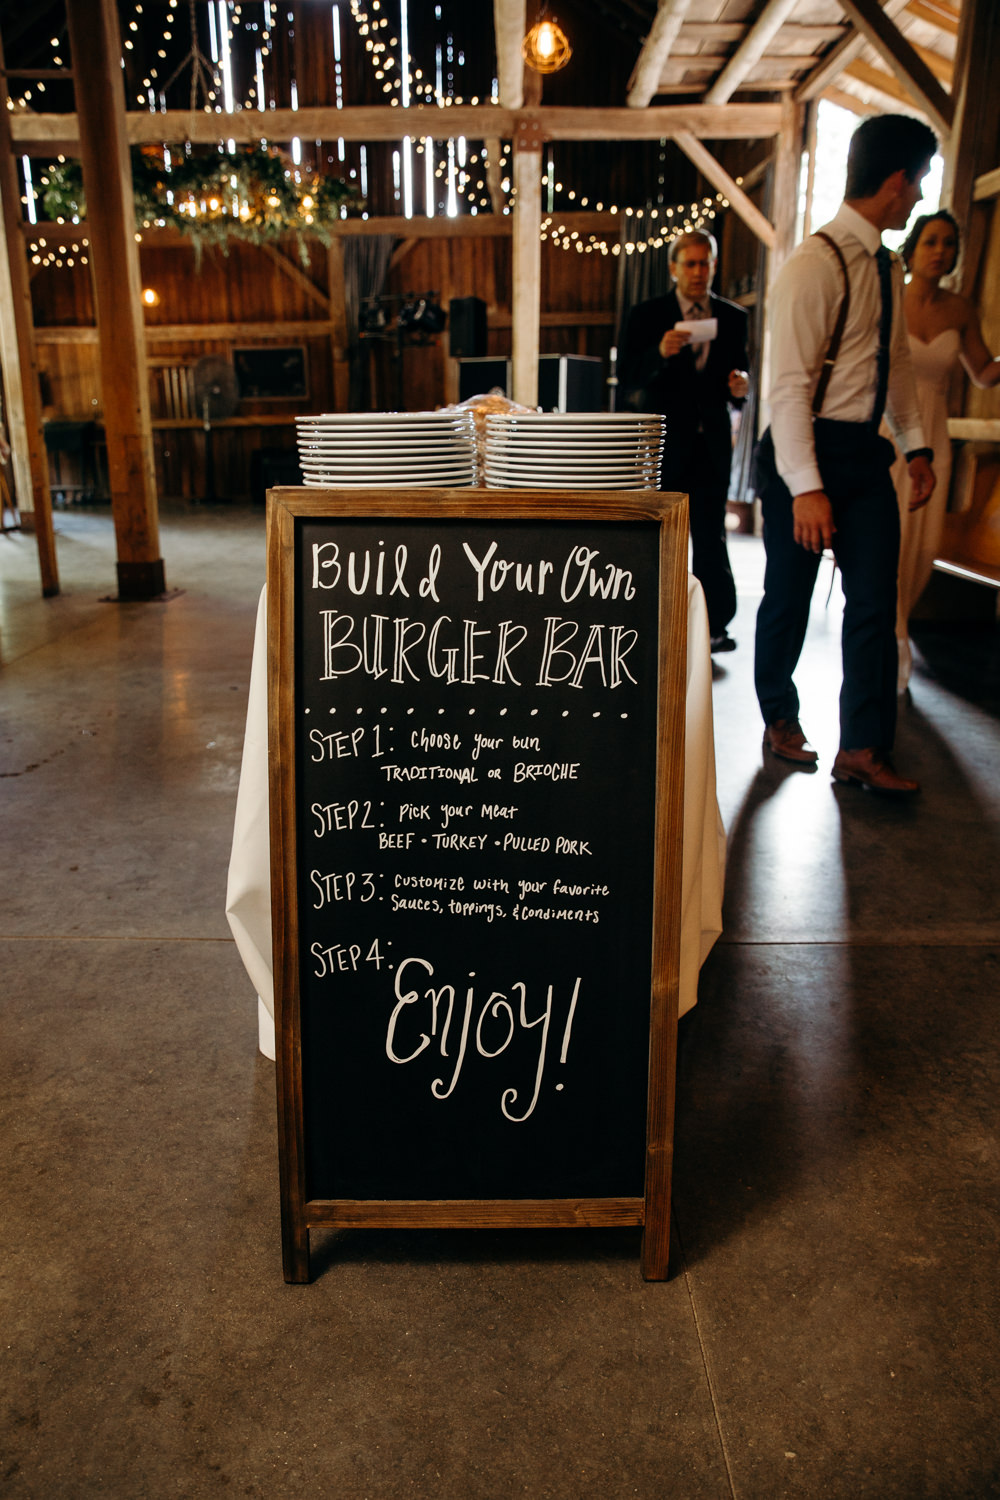 Build Your Own
BURGER BAR
STEP 1: Choose your bun
TRADITIONAL OR BRIOCHE
STEP 2: Pick your Meat
BEEF • TURKEY • PULLED PORK
STEP 3: Customize with your favorite
Sauces, toppings, & Condiments
STEP 4:
Enjoy!